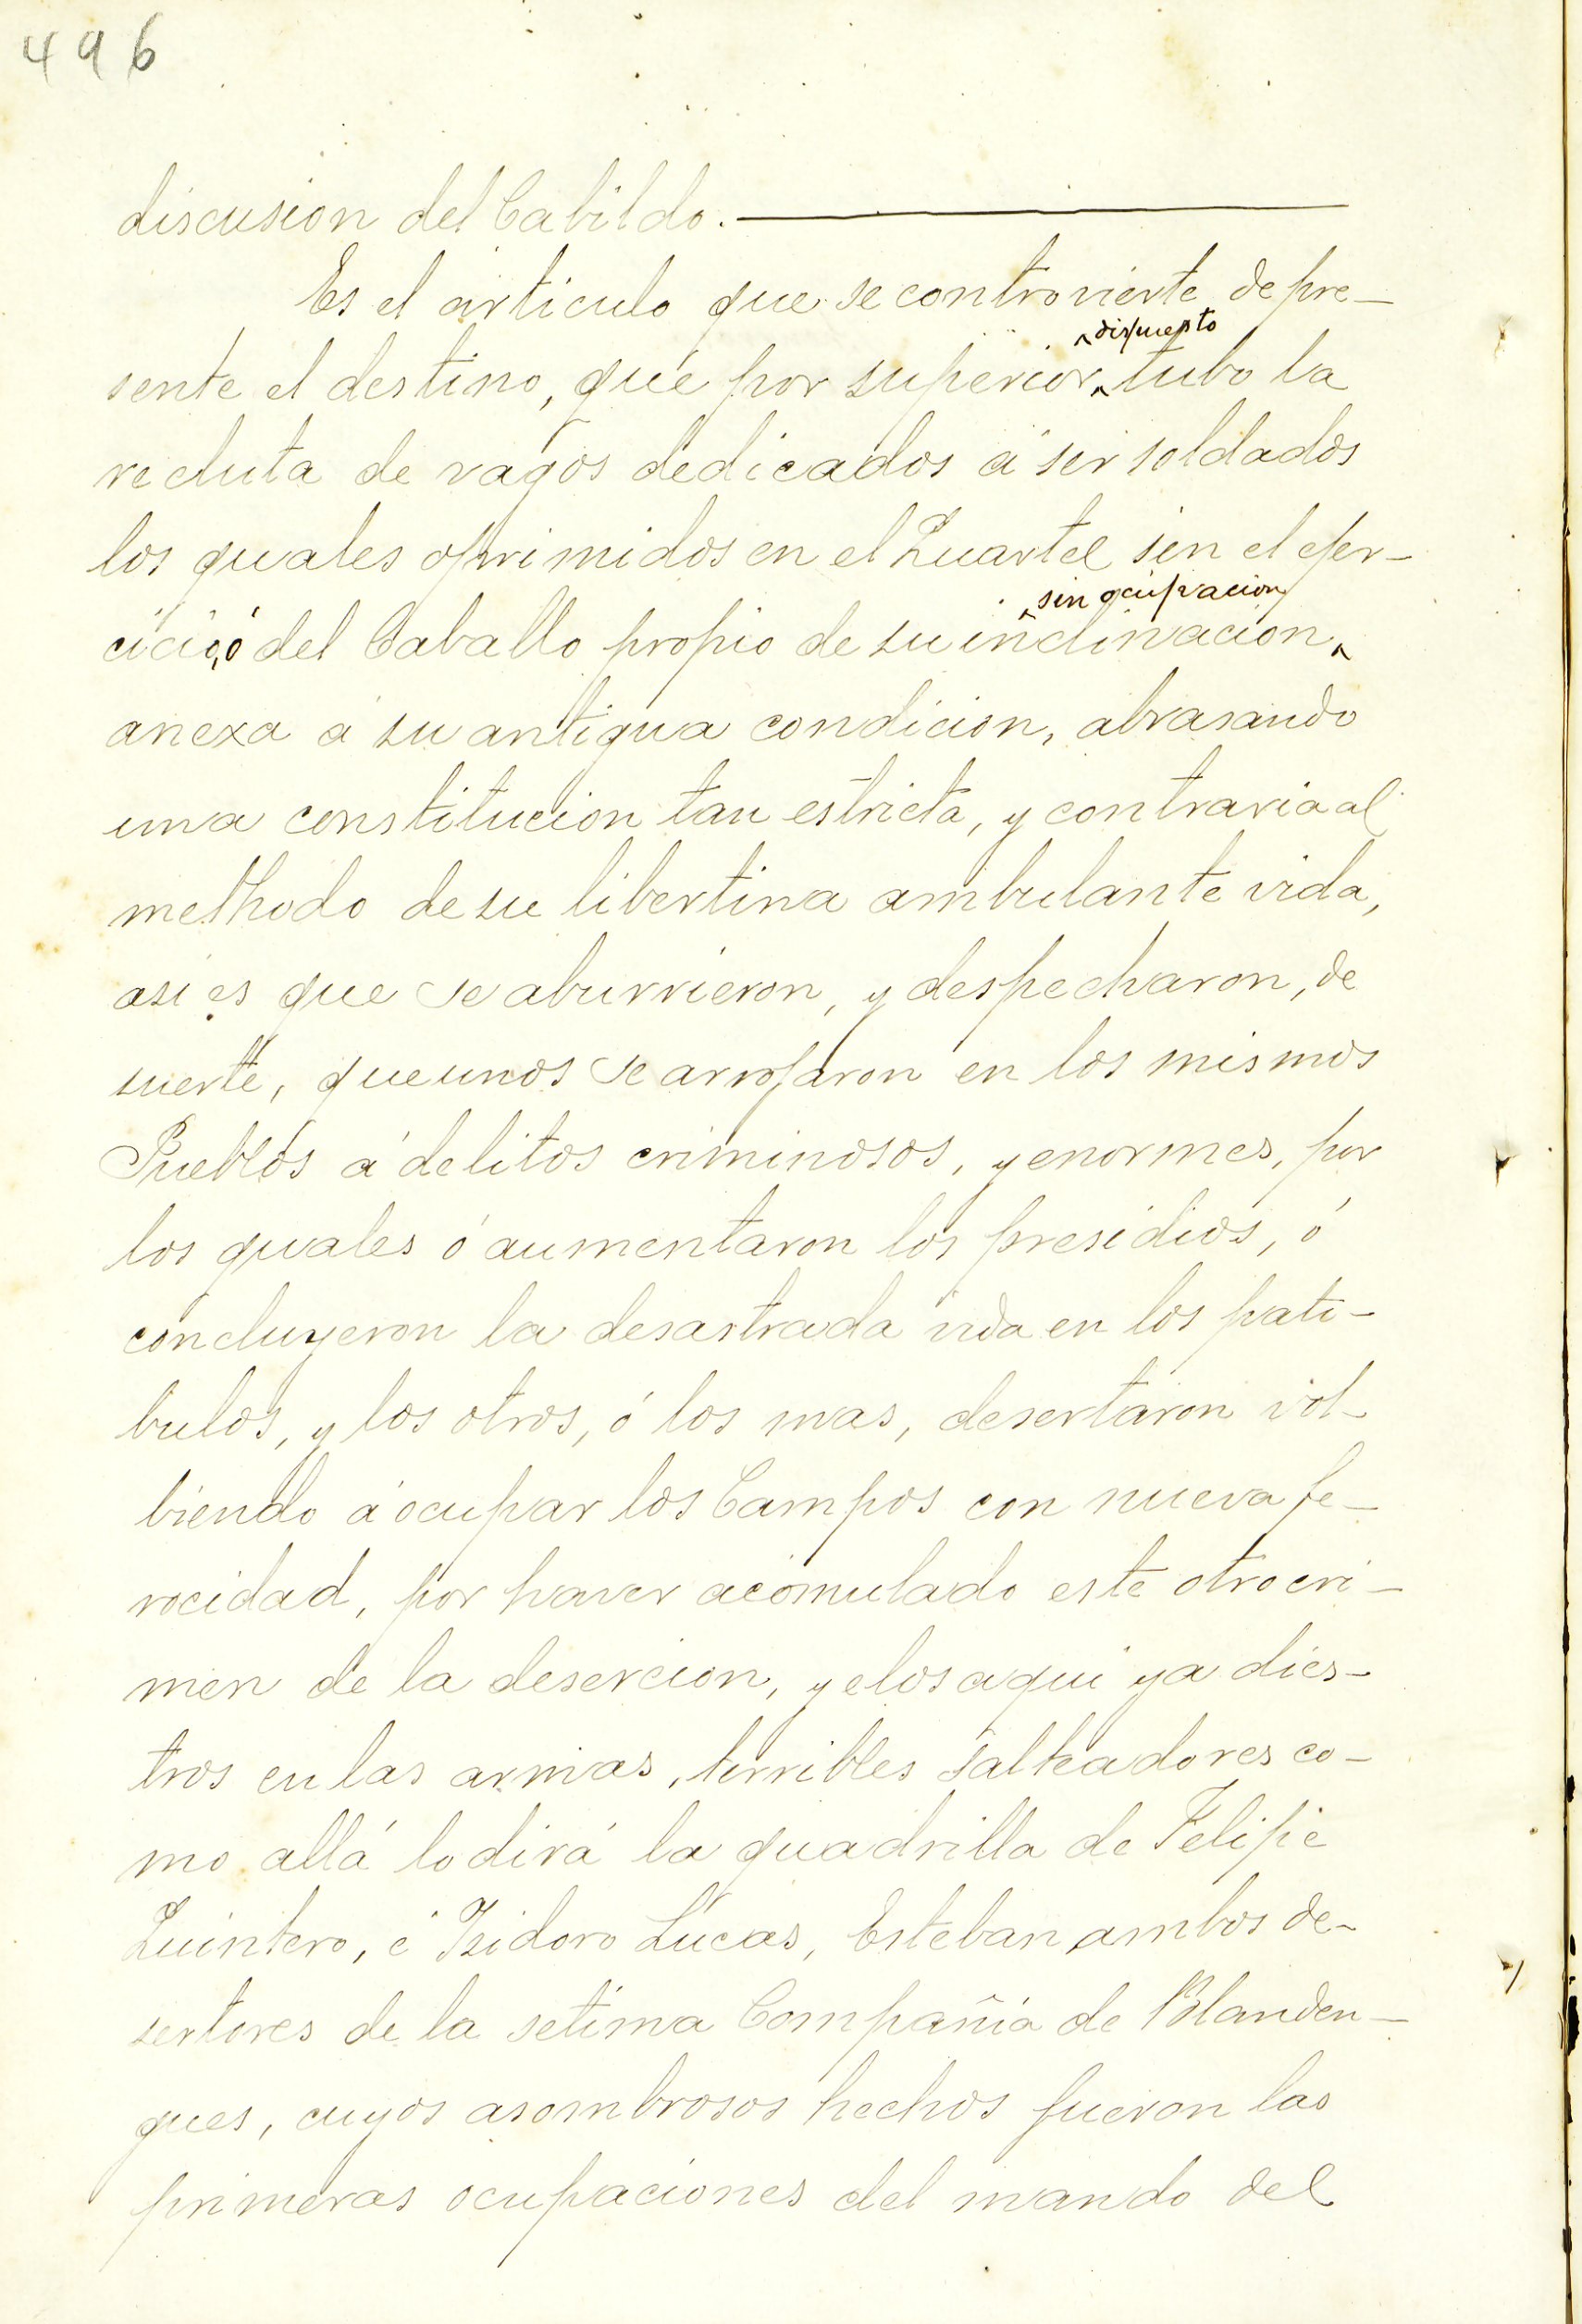 496
discusion del Cabildo.
Es el articulo que se controvierte de pre-
^dispuesto
sente el destino, que por superior ^ tubo la
recluta de vagos dedicados á ser soldados
los quales oprimidos en el Quartel sin el ejer-
^sin ocupacion
cicio, ó del Caballo propio de su inclinacion, ^
anexa á su antigua condicion, abrasando
una constitucion tan estricta, y contraria al
methodo de su libertina ambulante vida,
asi es que se aburrieron, y despecharon, de
suerte, que unos se arrojaron en los mismos
Pueblos á delitos criminosos, y enormes, por
los quales ó aumentaron los presidios, ó
concluyeron la desastrada vida en los pati-
bulos, y los otros, ó los mas, desertaron vol-
biendo á ocupar los Campos con nueva fe-
rocidad, por haver acomulado este otro cri-
men de la desercion, y elos aqui ya dies-
tros en las armas, terribles salteadores co-
mo allá lo dirá la quadrilla de Felipe
Quintero, é Isidoro Lucas, Esteban ambos de-
sertores de la setima Compañia de Blanden-
gues, cuyos asombrosos hechos fueron las
primeras ocupaciones del mando del